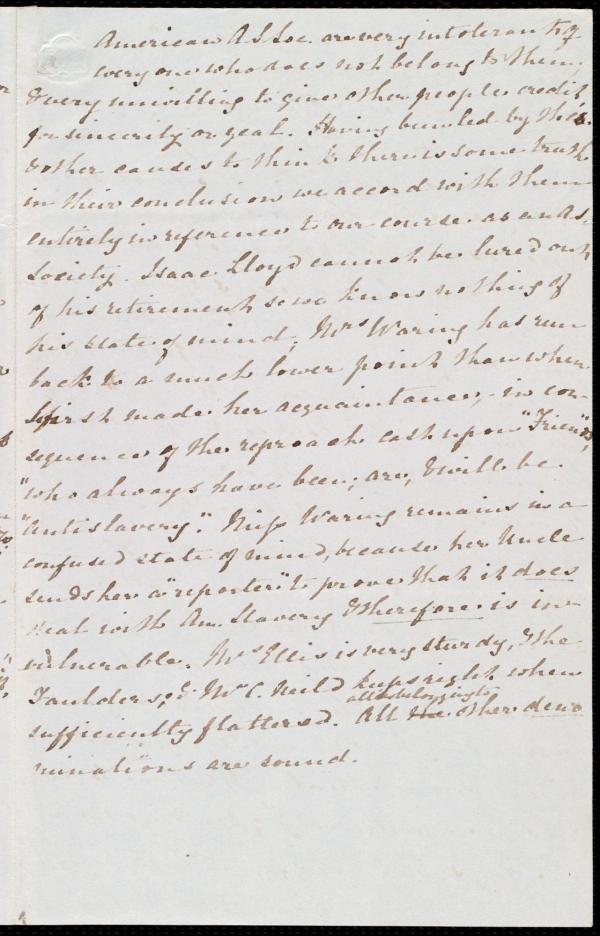 American A S Soc. are very intolerant of
every one who does not belong to them,
& very unwilling to give other people credit
for sincerity or zeal. Having been led by this
& other causes to think there is some truth
in their conclusion we accord with them
entirely in reference to our course as an As.
Society. Isaac Lloyd cannot be lured out
of his retirement so we know nothing of
his state of mind; Mrs Waring has run
back to a much lower point than when
I first made her acquaintance, - in con-
sequence of the reproach cast upon "Friends,"
"who always have been, are, & will be
"Antislavery." Miss Waring remains in a
confused state of mind, because her Uncle
sends her a "reporter" to prove that it does
deal with Am. Slavery & therefore is in-
vulnerable. Mrs Ellis is very sturdy, & the
Taulders; & Mr C. Neild keeps right when
sufficiently flattered. All the other deno
all belonging to
minations are sound.